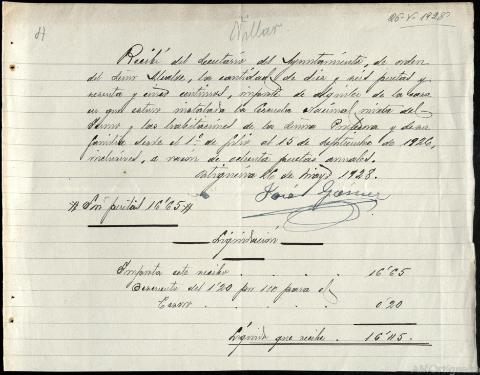 Villar
26-V-1928
Recibí del Secretario del Ayuntamiento, de orden
del Señor Alcalde, la cantidad de diez y seis pesetas y
sesenta y cinco céntimos, importe de alquiler de la casa
en que estuvo instalada la Escuela Nacional mixta del
y las habitaciones de la Profesora y de su
familia desde el 1º de Julio al 15 de Septiembre de 1926,
inclusives, a razón de ochenta pesetas annales.
Ortigueira 26 de Mayo 1928.
José
# Son pesetas 16'65 #
Liquidación
Importa este recibo . . . . 16'65
Descuento del 1'20 por 100 para el
. . . . . 0'20
Líquido que recibe . 16'45